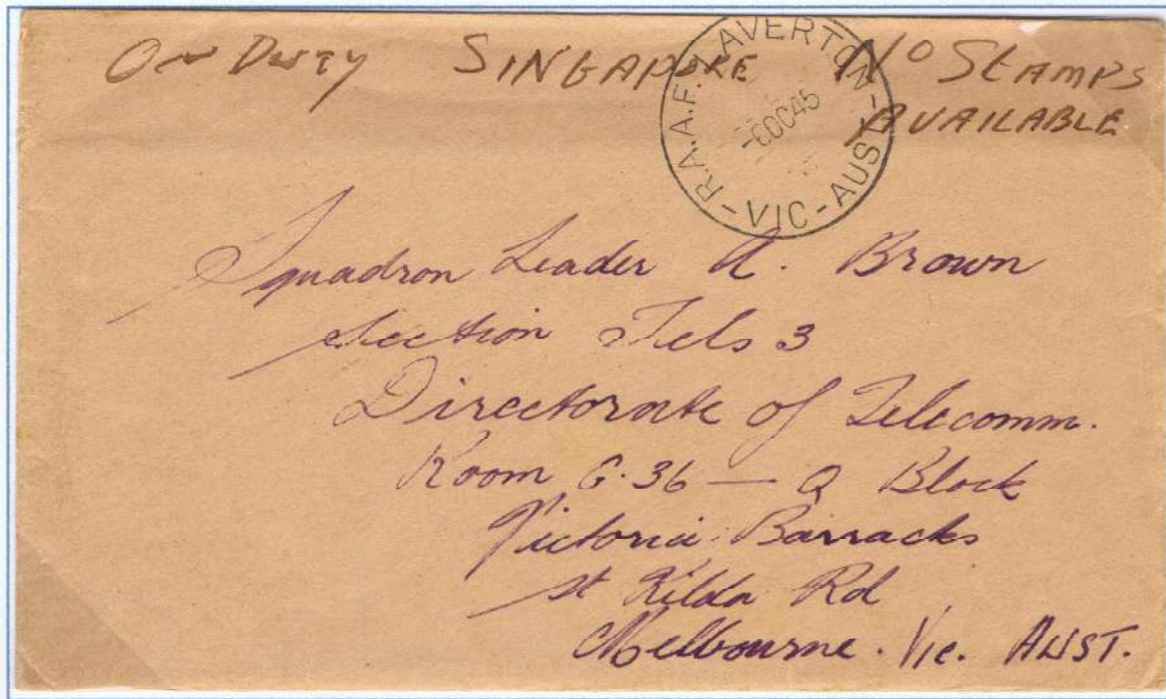 On Duty SINGAPORE No STAMPS
AVAILABLE
R.A.A.F. LAVERTON - VIC - AUST -
-8OC45
Squadron Leader A. Brown
Section Tels 3
Directorate of Telecomm.
Room G.36 — Q Block
Victoria Barracks
St Kilda Rd
Melbourne. Vic. AUST.